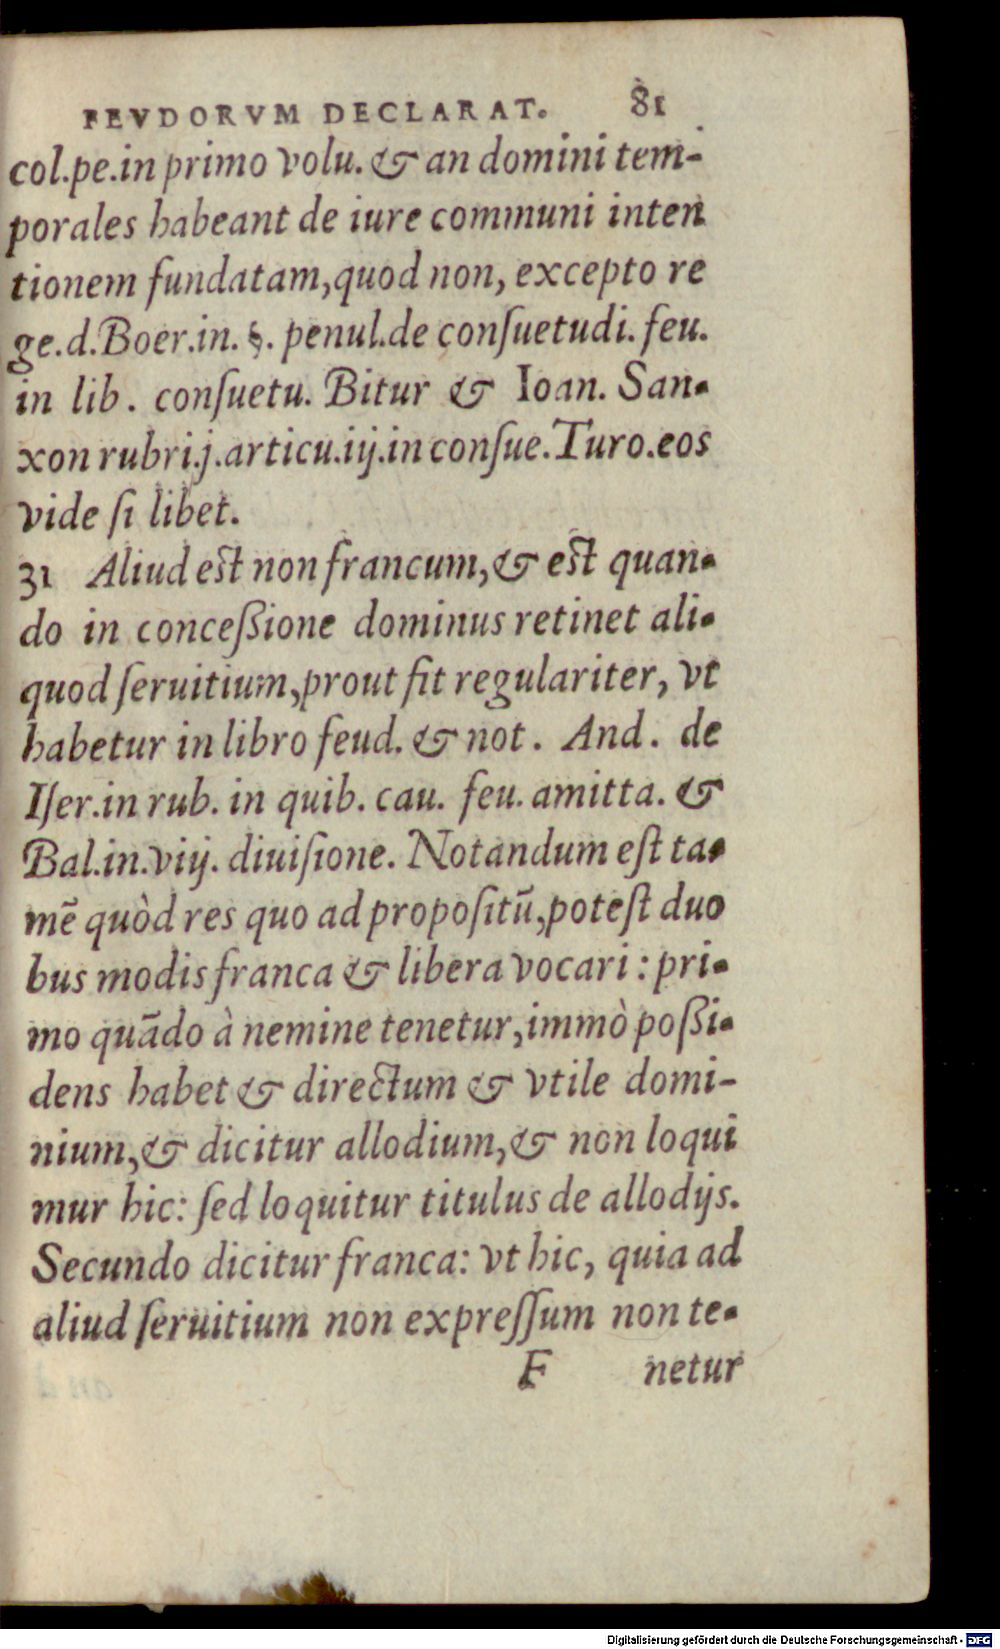 FEVDORVM DECLARAT. 81
col.pe.in primo volu. & an domini tem-
porales habeant de iure communi inten
tionem fundatam,quod non, excepto re
ge.d.Boer.in. §. penul.de conſuetudi. feu.
in lib. conſuetu. Bitur & Ioan. San-
xon rubri.j.articu.iij.in conſue.Turo.eos
vide ſi libet.
31 Aliud eſt non francum,& eſt quan-
do in conceßione dominus retinet ali-
quod ſeruitium,prout fit regulariter, vt
habetur in libro feud. & not. And. de
Iſer.in rub. in quib. cau. feu. amitta. &
Bal.in.vij. diuiſione. Notandum eſt ta-
mē quòd res quo ad propoſitū,poteſt duo
bus modis franca & libera vocari : pri-
mo quādo à nemine tenetur,immò poßi-
dens habet & directum & vtile domi-
nium,& dicitur allodium,& non loqui
mur hic: ſed loquitur titulus de allodijs.
Secundo dicitur franca: vt hic, quia ad
aliud ſeruitium non expreſſum non te-
F netur
Digitalisierung gefördert durch die Deutsche Forschungsgemeinschaft - DFG